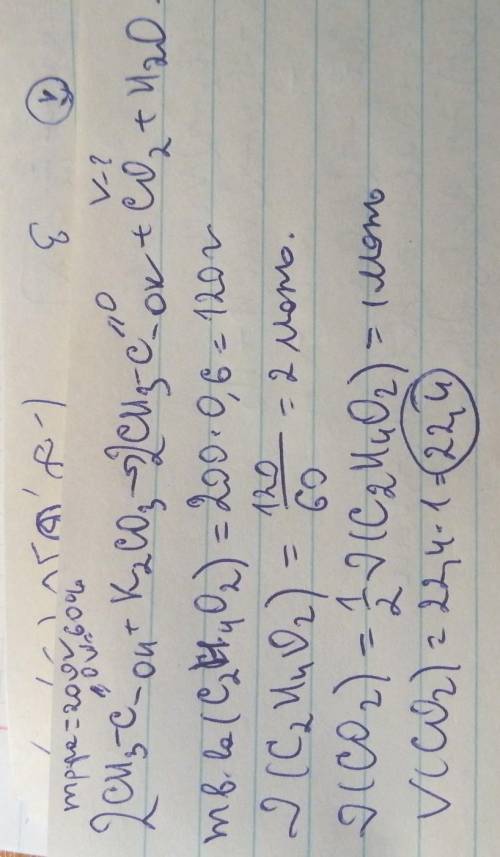 mр-ра=200г
ω=60%
V-?
2CH3-C-OH + K2CO3 → 2CH3-C-OK + CO2 + H2O.
mв.ва(C2H4O2) = 200·0,6 = 120г
ν(C2H4O2) = 120/60 = 2 моль.
ν(CO2) = 1/2 ν(C2H4O2) = 1 моль
V(CO2) = 22,4·1 = 22,4